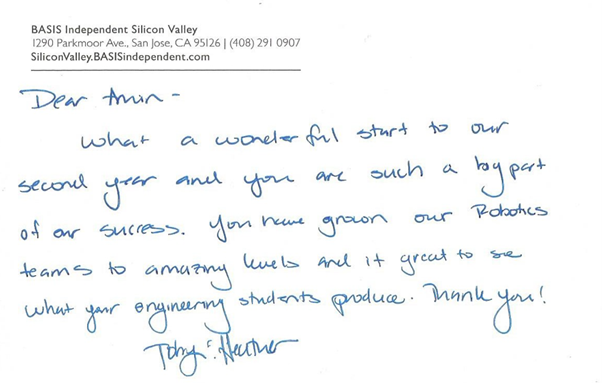 BASIS Independent Silicon Valley
1290 Parkmoor Ave., San Jose, CA 95126 | (408) 291 0907
SiliconValley.BASISindependent.com
Dear Amin -
What a wonderful start to our
second year and you are such a big part
of our success. You have grown our Robotics
teams to amazing levels and it great to see
what your engineering students produce. Thank you!
Toby : Heather